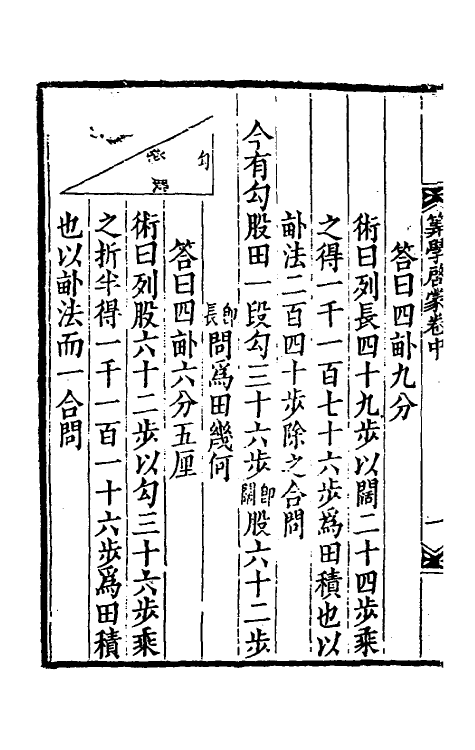 筭學啓蒙卷中
一
答曰四畝九分
術曰列長四十九步以闊二十四步乘
之得一千一百七十六步爲田積也以
畝法二百四十步除之合問
今有勾股田一段勾三十六步即闊股六十二步
即長問爲田幾何
答曰四畝六分五厘
術曰列股六十二步以勾三十六步乘
之折半得一千一百一十六步爲田積
也以畝法而一合問
勾
股